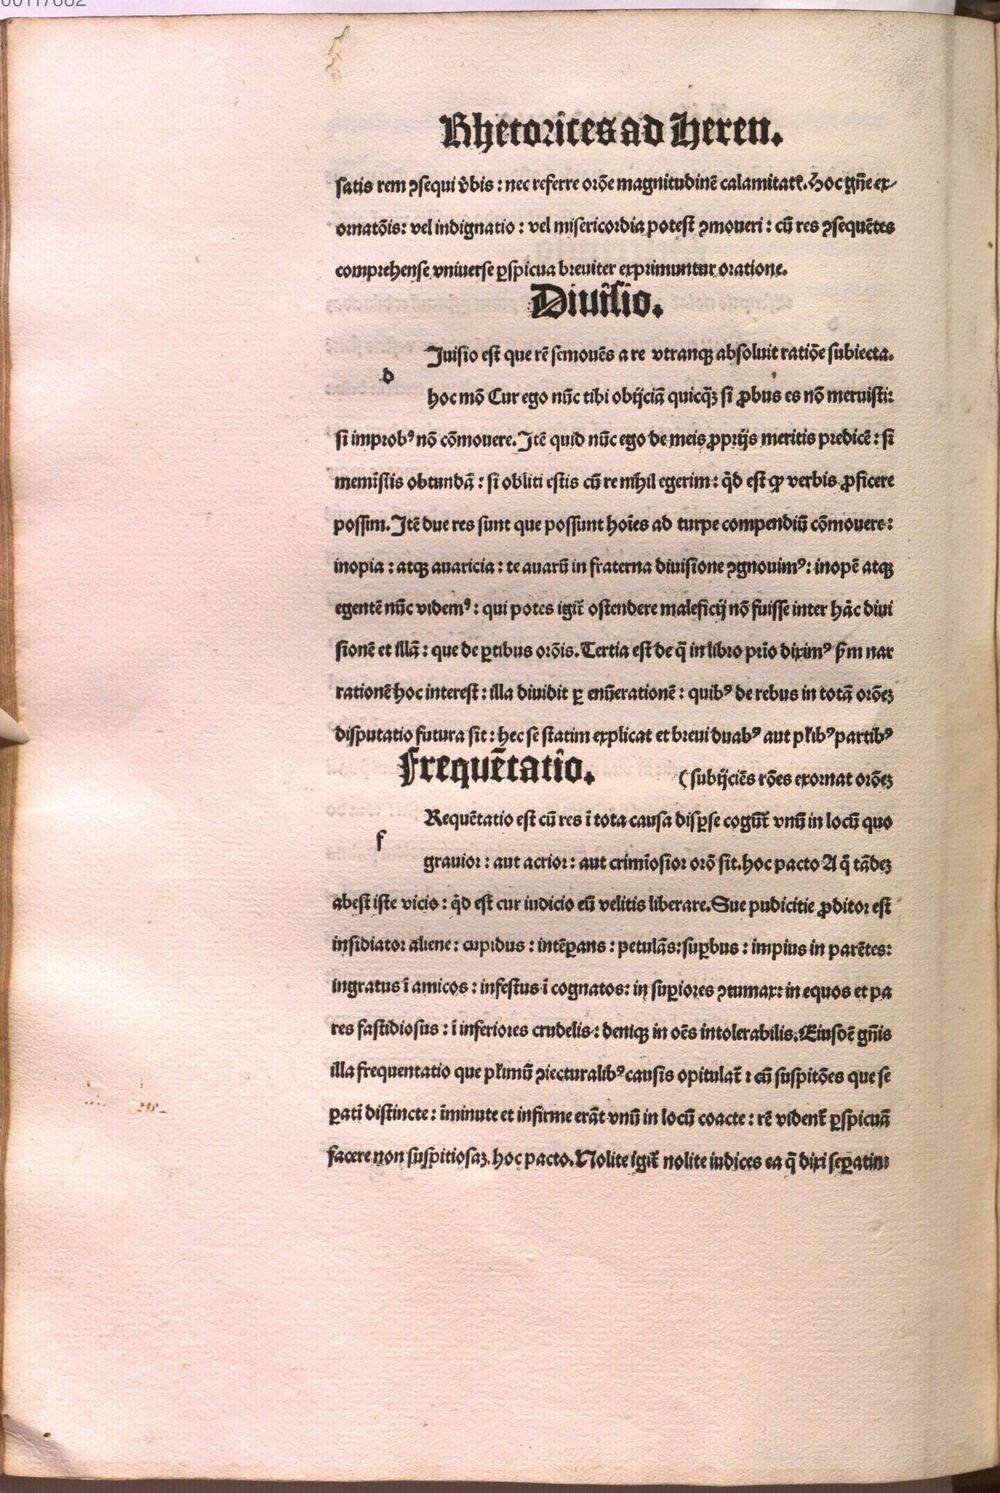 00117682
Rhetorices ad Heren.
satis rem ꝯsequi v̄bis : nec referre orōe magnitudinē calamitatꝭ. Hoc gn̄e ex⸗
ornatōis: vel indignatio : vel misericordia potest ꝯmoueri : cū res ꝯsequētes
comprehense vniuerse ꝑspicua breuiter exprimuntur oratione.
Diuisio.
Iuisio est que rē semouēs a re vtranqꝫ absoluit ratiōe subiecta.
d
hoc mō Cur ego nūc tibi obijciā quicq̄ꝫ si ꝓbus es nō meruisti:
si improbꝰ nō cōmouere. Itē quid nūc ego de meis ꝓprijs meritis predicē : si
meministis obtundā : si obliti estis cū re nihil egerim : qd̄ est ꝙ verbis ꝓficere
possim. Itē due res sunt que possunt hoīes ad turpe compendiū cōmouere :
inopia : atqꝫ auaricia : te auarū in fraterna diuisione ꝯgnouimꝰ: inopē atqꝫ
egentē nūc videmꝰ : qui potes igit̄ ostendere maleficij nō fuisse inter hāc diui
sionē et illā : que de ꝑtibus orōis. Tertia est de q̄ in libro prīo diximꝰ ẜm nar
rationē hoc interest : illa diuidit ꝑ enūerationē : quibꝰ de rebus in totā orōeꝫ
disputatio futura sit : hec se statim explicat et breui duabꝰ aut pl̄ibꝰ partibꝰ
Frequētatio.
(subijciēs rōes exornat orōeꝫ
Requētatio est cū res ī tota causa disꝑse cogūt̄ vnū in locū quo
f
grauior : aut acrior : aut crimīosior orō sit. hoc pacto A q̄ tādeꝫ
abest iste vicio : qd̄ est cur iudicio eū velitis liberare. Sue pudicitie ꝓditor est
insidiator aliene : cupidus : intēꝑans : petulās: suꝑbus : impius in parētes:
ingratus ī amicos : infestus ī cognatos: in suꝑiores ꝯtumax: in equos et pa
res fastidiosus : ī inferiores crudelis : deniqꝫ in oēs intolerabilis. Eiusdē gn̄is
illa frequentatio que pl̄imū ꝯiecturalibꝰ causis opitulat̄ : cū suspitōes que se
ꝑati distincte : īminute et infirme erāt vnū in locū coacte : rē vident̄ ꝑspicuā
facere non suspitiosaꝫ. hoc pacto. Nolite igit̄ nolite iudices ea q̄ dixi seꝑatim